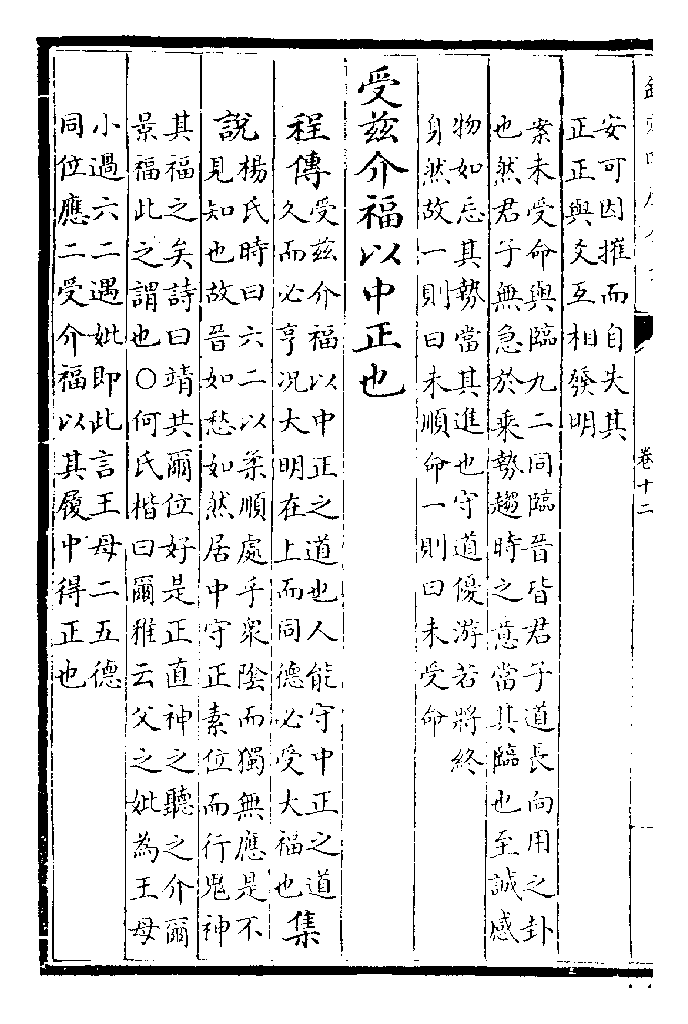 卷十二
安可因摧而自失其
正正與爻互相發明
案未受命與臨九二同臨晉皆君子道長向用之卦
也然君子無急於乘勢趨時之意當其臨也至誠感
物如忘其勢當其進也守道優游若將終
身然故一則曰未順命一則曰未受命
受兹介福以中正也
程傳受兹介福以中正之道也人能守中正之道
久而必亨况大明在上而同德必受大福也集
說楊氏時曰六二以柔順處乎衆陰而獨無應是不
見知也故晉如愁如然居中守正素位而行鬼神
其福之矣詩曰靖共爾位好是正直神之聽之介爾
景福此之謂也○何氏楷曰爾雅云父之妣為王母
小過六二遇妣即此言王母二五德
同位應二受介福以其履中得正也